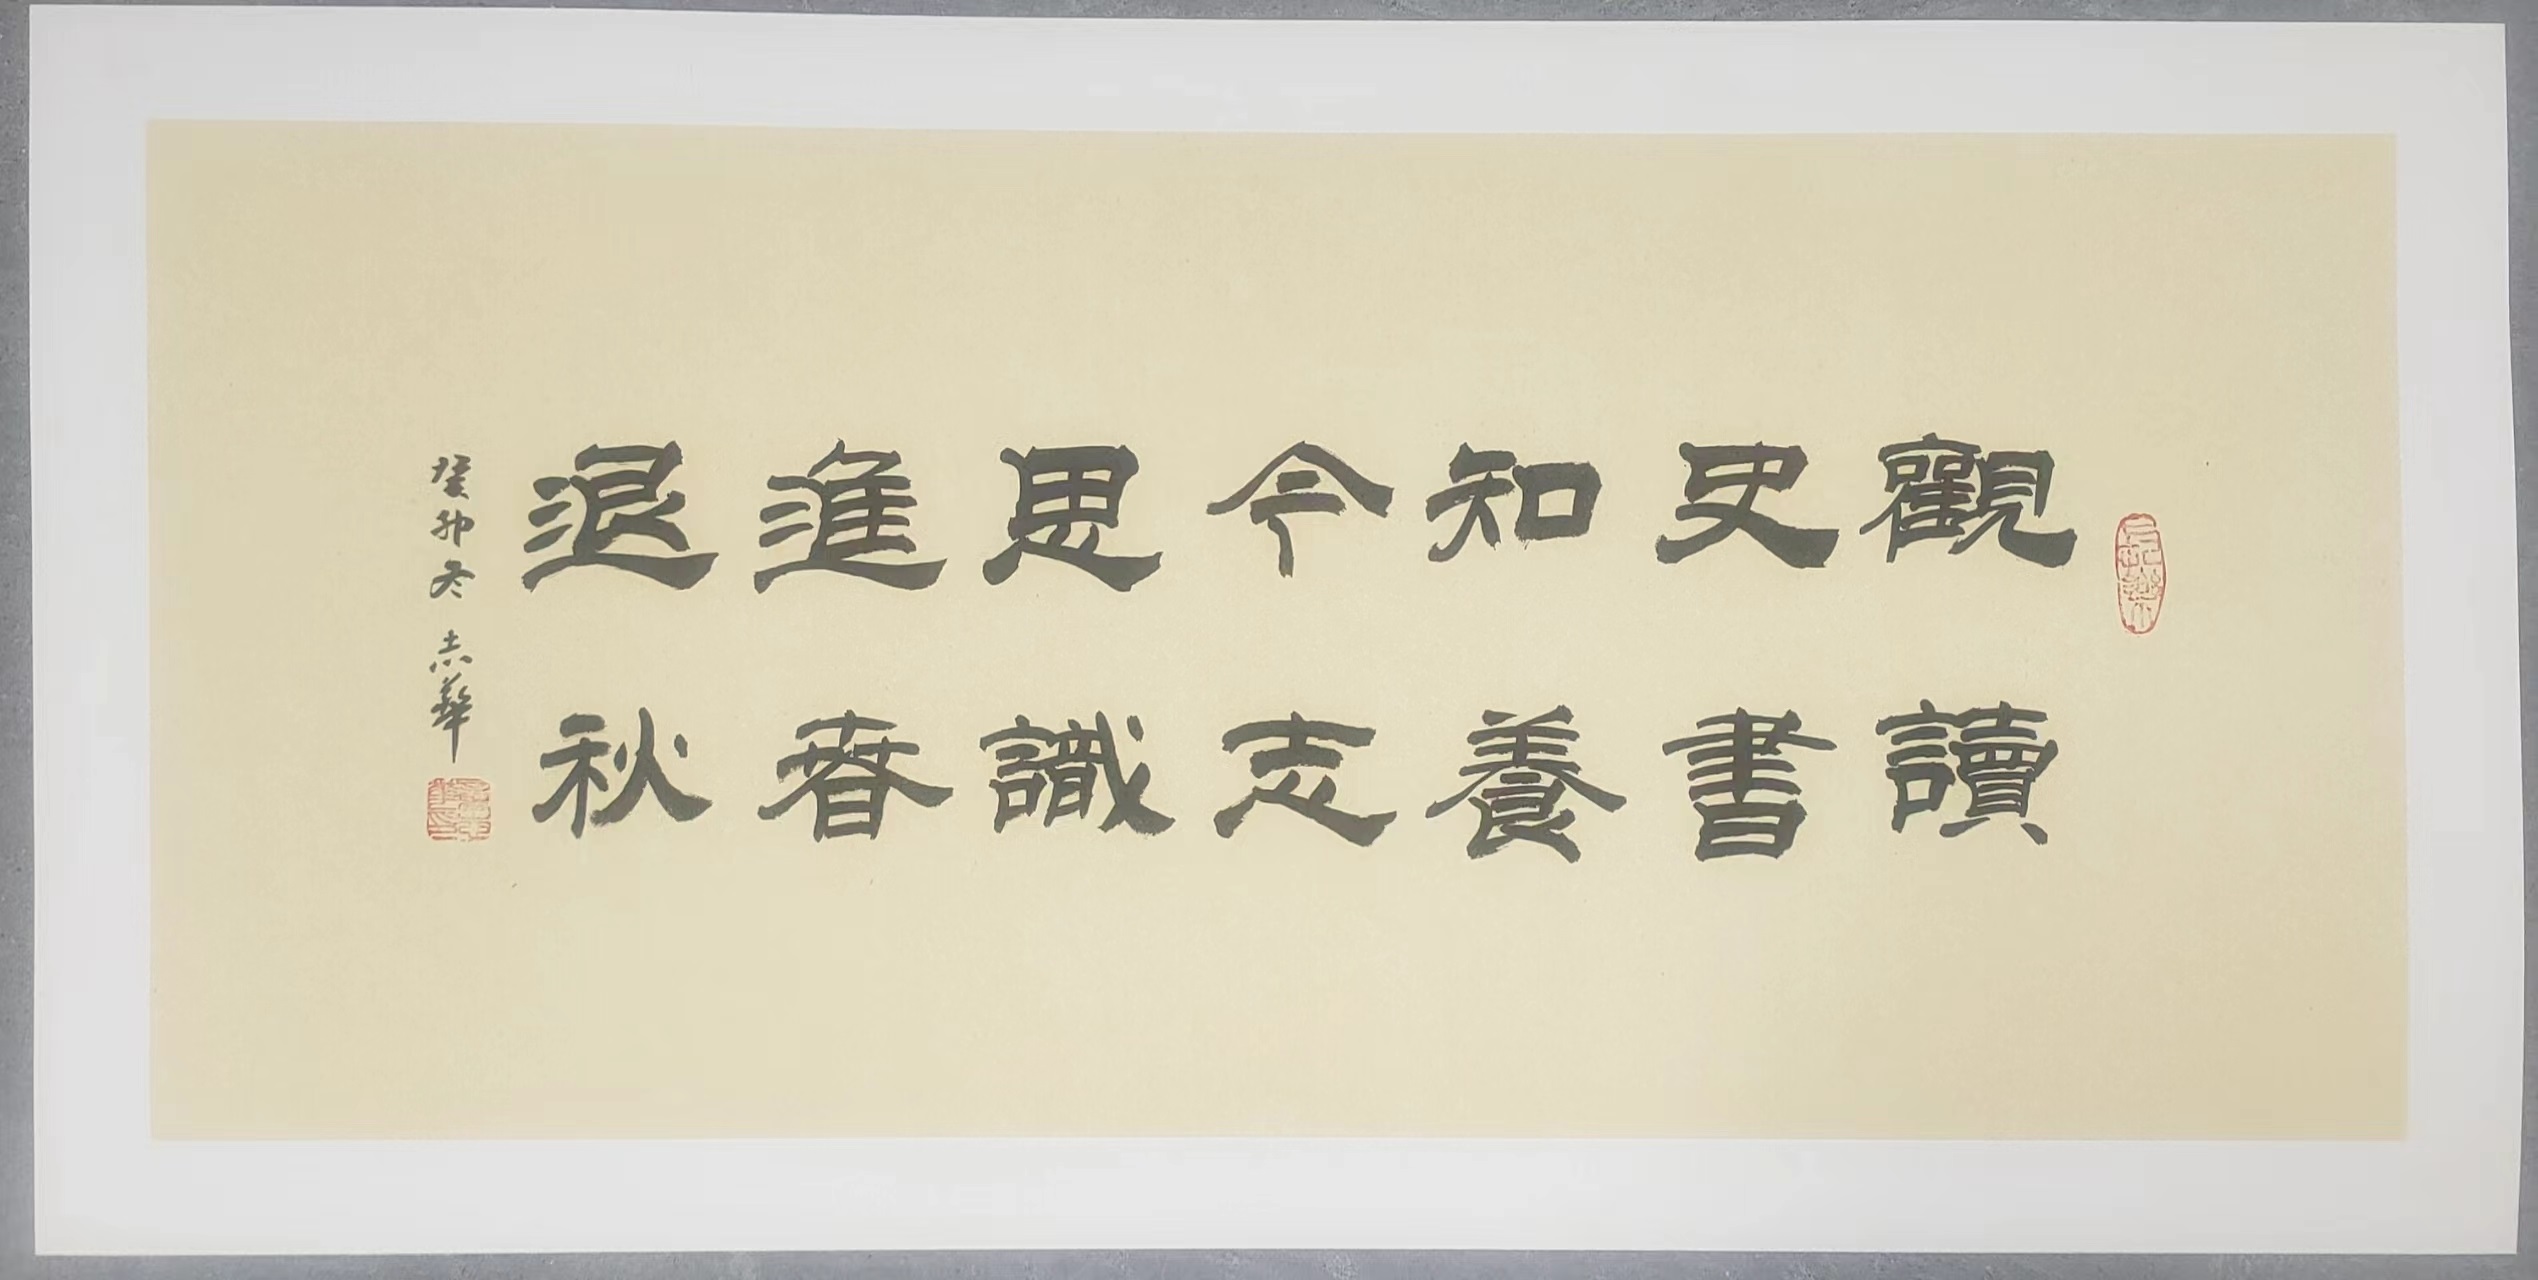 觀史知今思進退
讀書養志識春秋
癸卯冬 志華